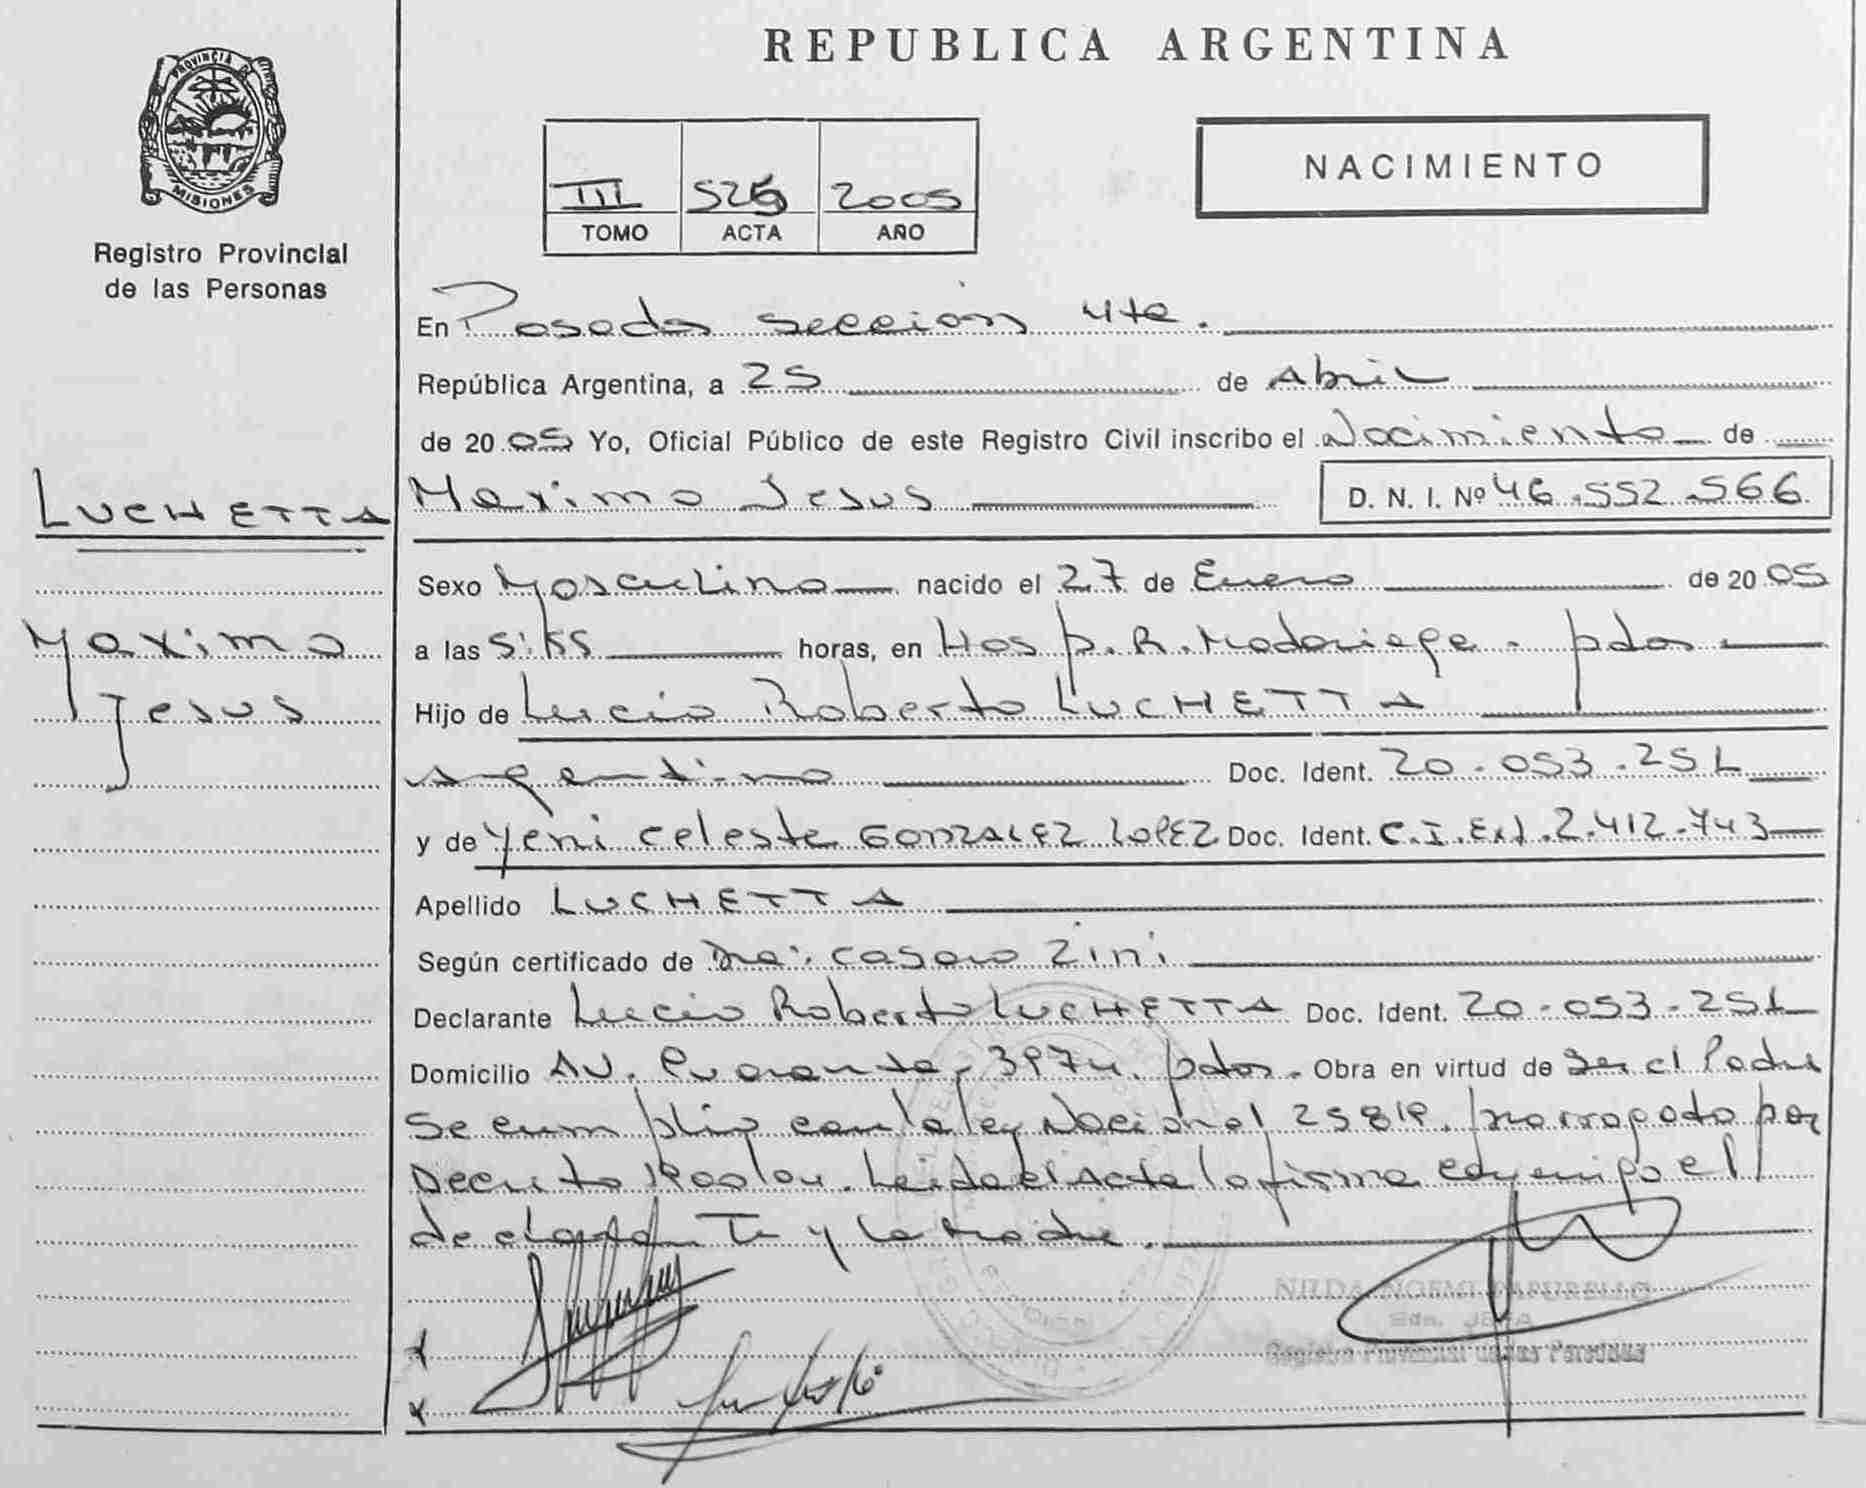 REPUBLICA ARGENTINA
PROVINCIA DE
MISIONES
Registro Provincial
de las Personas
III 2005
TOMO ACTA AÑO
NACIMIENTO
En Posadas sección 4ta.
República Argentina, a 25 de Abril
de 2005 Yo, Oficial Público de este Registro Civil inscribo el Nacimiento de
Maximo Jesus D. N. I. Nº 46.552.566
LUCHETTA
Maximo
Jesus
Sexo Masculino nacido el 27 de Enero de 2005
a las horas, en Hosp. R. Madariaga - pdas
Hijo de Lucio Roberto LUCHETTA
argentino Doc. Ident. 20.053.251
y de Yeni Celeste GONZALEZ LOPEZ Doc. Ident. C.I. Ext. 2.412.743
Apellido LUCHETTA
Según certificado de Dra: Casaro Zini
Declarante Lucio Roberto LUCHETTA Doc. Ident. 20.053.251
Domicilio AV. 3974. pdas. Obra en virtud de Ser el Padre
Se cumplio con la ley Nacional 25819. prorrogado por
Decreto Leida el Acta la firma conmigo el
declarante y la madre.
NILDA NOEMI PAPURELLO
Registro Provincial de las Personas